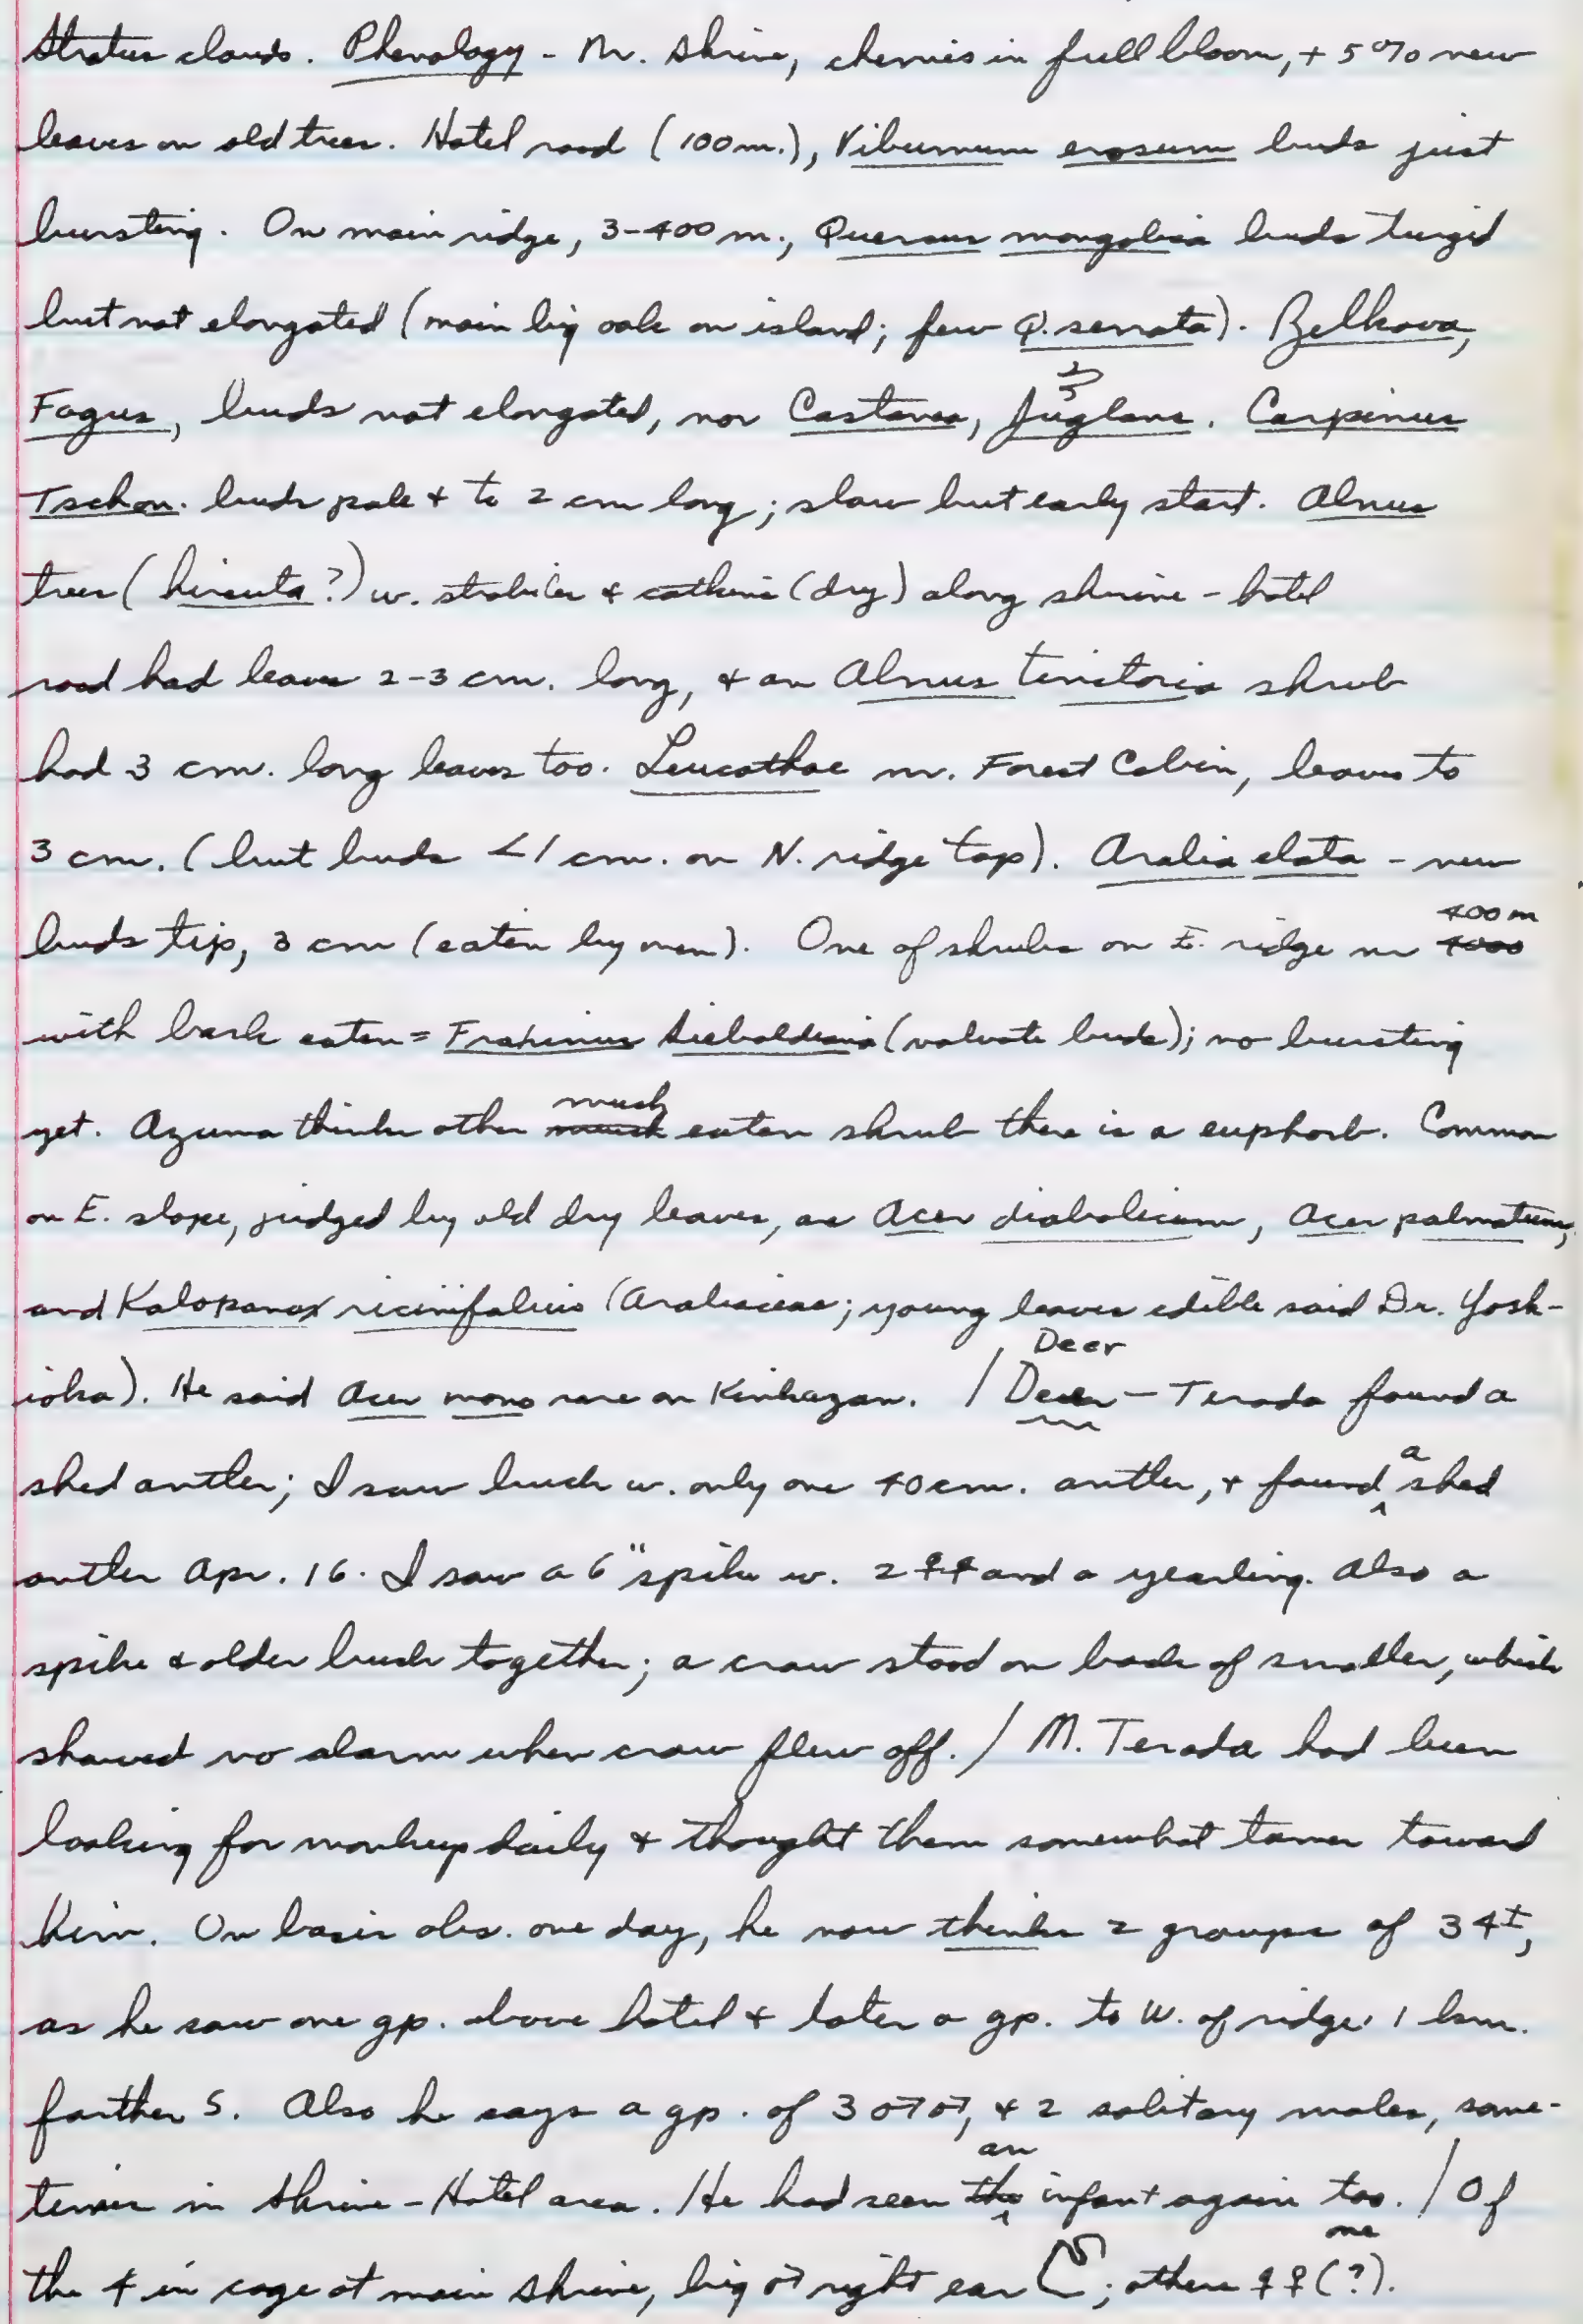 Stratus clouds. Phenology - Nr. shrine, cherries in full bloom, + 5% new
leaves on old trees. Hotel road (100 m.), Viburnum erosum buds just
bursting. On main ridge, 3-400 m., Quercus mongolica buds turgid
but not elongated (main big oak on island; few Q. serrata). Zelkova,
Fagus, buds not elongated, nor Castanea, Juglans. Carpinus
Tschon. buds pale + to 2 cm long; slow but early start. Alnus
trees (hirsuta?) w. strobiles + catkins (dry) along shrine - hotel
road had leaves 2-3 cm. long, + an Alnus tinctoria shrub
had 3 cm. long leaves too. Leucothoe nr. Forest Cabin, leaves to
3 cm. (but buds <1 cm. on N. ridge top). Aralia elata - new
400 m
buds tip, 3 cm (eaten by men). One of shrubs on E. ridge nr 4000
with bark eaten = Fraxinus Sieboldiana (valvate buds); no bursting
much
yet. Azuma thinks other much eaten shrub there is a euphorb. Common
on E. slope, judged by old dry leaves, are Acer diabolicum, Acer palmatum,
and Kalopanax ricinifolius (Araliaceae; young leaves edible said Dr. Yosh-
Deer
ioka). He said Acer mono rare on Kinkazan. / Deer - Terada found a
shed antler; I saw buck w. only one 40 cm. antler, + found a shed
antler Apr. 16. I saw a 6" spike w. 2 ♀♀ and a yearling. Also a
spike + older buck together; a crow stood on back of smaller, which
showed no alarm when crow flew off. / M. Terada had been
looking for monkeys daily + thought them somewhat tamer toward
him. On basis obs. one day, he now thinks 2 groups of 34±,
as he saw one gp. above hotel + later a gp. to W. of ridge 1 km.
farther S. Also he says a gp. of 3 ♂♂, + 2 solitary males, some-
an
times in Shrine - Hotel area. He had seen the infant again too. / Of
one
the 4 in cage at main shrine, big ♂ right ear ; others ♀♀ (?).